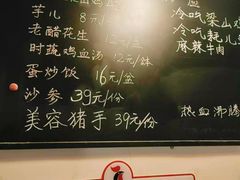 芋儿 8元/
老醋花生
时蔬鸡血汤 12元/钵
蛋炒饭 16元/盆
沙参 39元/份
美容猪手 39元/份
冷吃梁山
冷吃耗儿
麻辣牛肉
热血沸腾